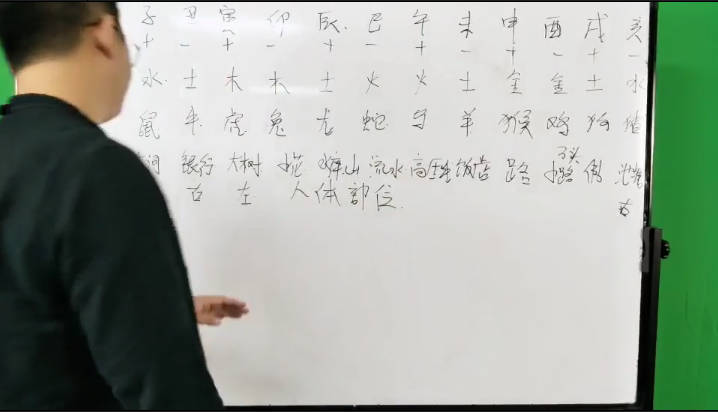 子 丑 寅 卯 辰 巳 午 未 申 酉 戌 亥
+ - + - + - + - + - + -
水 土 木 木 土 火 火 土 金 金 土 水
鼠 牛 虎 兔 龙 蛇 午 羊 猴 鸡 狗 猪
银行 大树 花 山 流水 高 饭店 路 路
右 左 人体部位 右